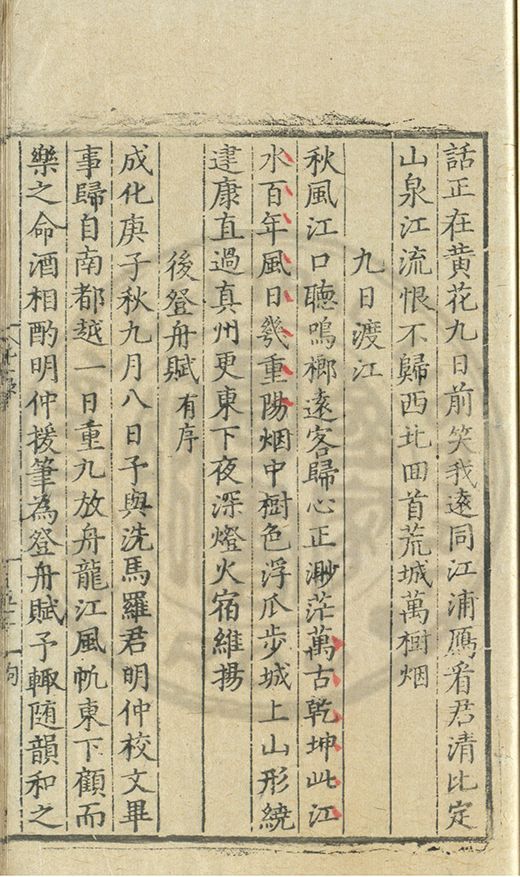 話正在黄花九日前笑我遠同江浦鴈看君清比定
山泉江流恨不歸西北囬首荒城萬樹烟
九日渡江
秋風江口聽鳴榔遠客歸心正渺茫萬古乾坤此江
水百年風日幾重陽烟中樹色浮瓜步城上山形繞
建康直過真州更東下夜深燈火宿維揚
後登舟賦有序
成化庚子秋九月八日予與洗馬羅君明仲校文畢
事歸自南都越一日重九放舟龍江風帆東下顧而
樂之命酒相酌明仲援筆為登舟賦予輙随韻和之